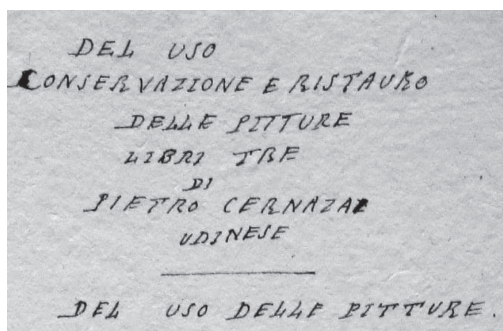 DEL USO
CONSERVAZIONE E RISTAURO
DELLE PITTURE
LIBRI TRE
DI
PIETRO CERNAZAI
UDINESE
DEL USO DELLE PITTURE.